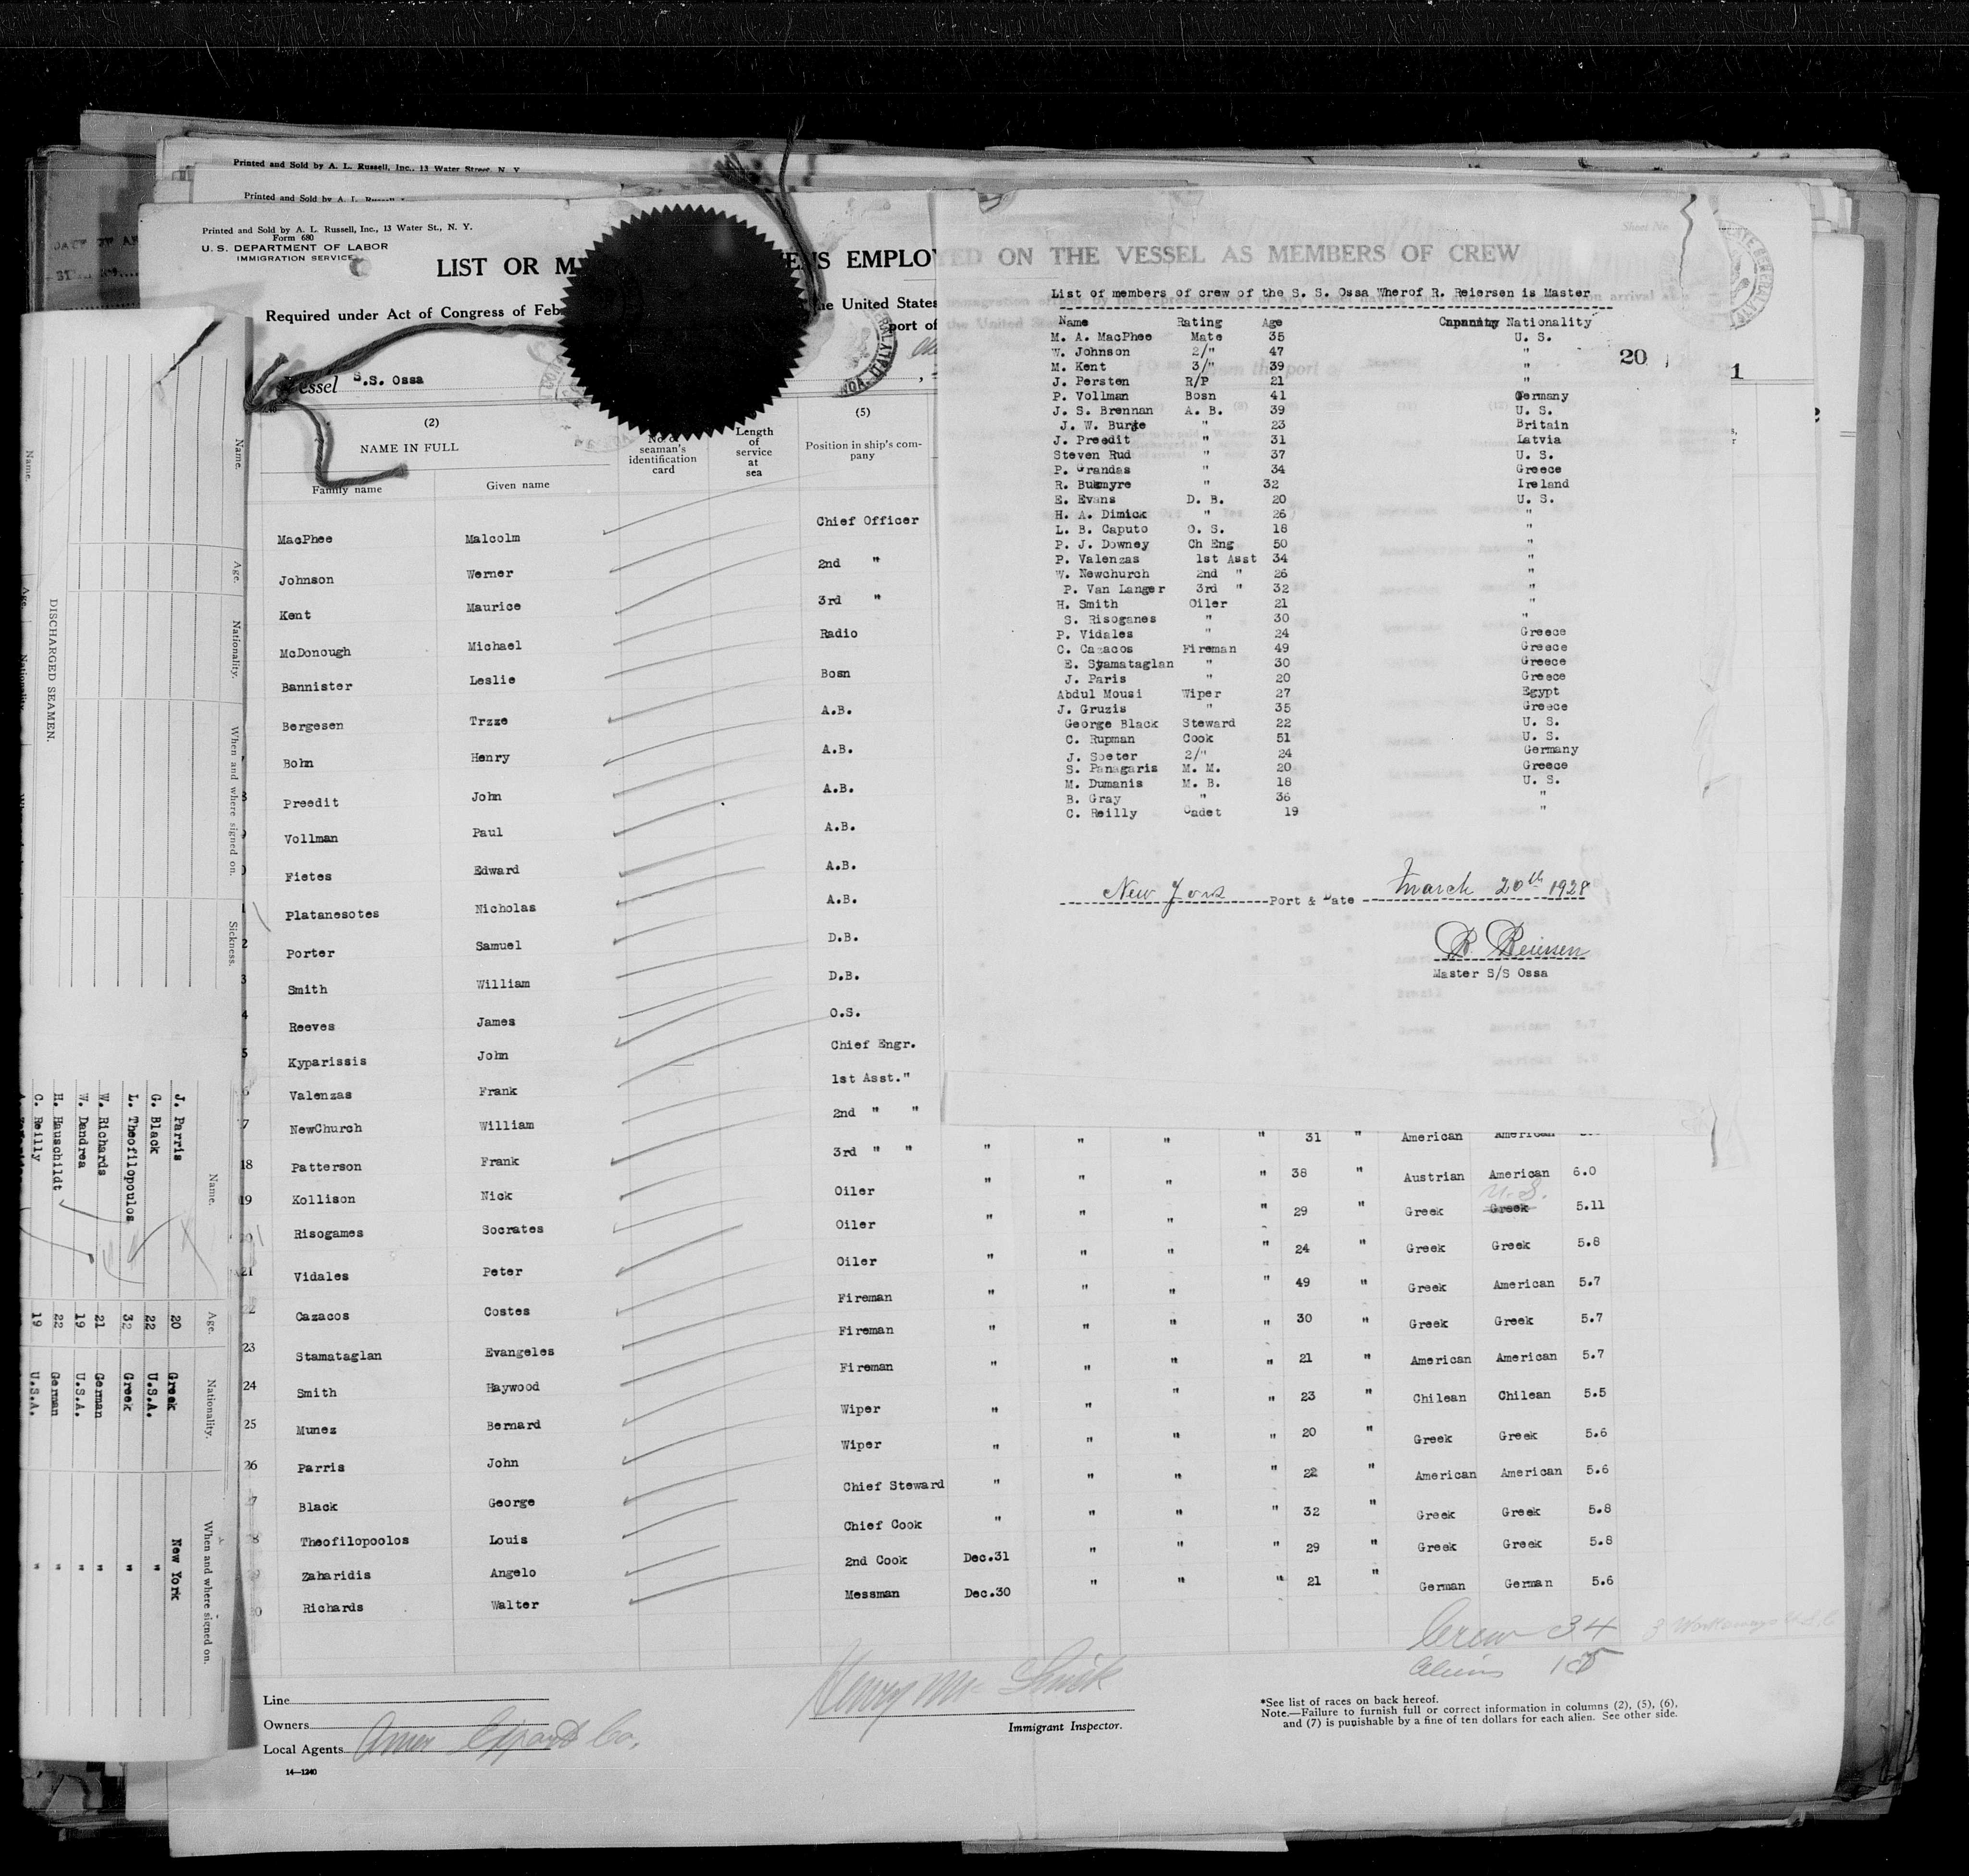 Printed and Sold by A. L. Russell, Inc., 13 Water Street, N. Y.
Printed and Sold by A. L. Russell
Printed and Sold by A. L. Russell, Inc., 13 Water St., N. Y.
Form 680
U. S. DEPARTMENT OF LABOR
IMMIGRATION SERVICE
LIST OR EMPLOYED ON THE VESSEL AS MEMBERS OF CREW
Required under Act of Congress of Feb the United States
port of
Vessel S.S. Ossa
(2) (5)
NAME IN FULL
No. of seaman's identification card
Length of service at sea
Position in ship's company
Family name Given name
MacPhee Malcolm Chief Officer
Johnson Werner 2nd "
Kent Maurice 3rd "
McDonough Michael Radio
Bannister Leslie Bosn
Bergesen Trzze A.B.
Bohn Henry A.B.
Preedit John A.B.
Vollman Paul A.B.
Fietes Edward A.B.
Platanesotes Nicholas A.B.
Porter Samuel D.B.
Smith William D.B.
Reeves James O.S.
Kyparissis John Chief Engr.
Valenzas Frank 1st Asst."
NewChurch William 2nd " "
18 Patterson Frank 3rd " " " " " " 31 " American American
19 Kollison Nick Oiler " " " " 38 " Austrian American 6.0
Risogames Socrates Oiler " " " " 29 " Greek Greek U.S. 5.11
21 Vidales Peter Oiler " " " " 24 " Greek Greek 5.8
22 Cazacos Costes Fireman " " " " 49 " Greek American 5.7
23 Stamataglan Evangeles Fireman " " " " 30 " Greek Greek 5.7
24 Smith Haywood Fireman " " " " 21 " American American 5.7
25 Munez Bernard Wiper " " " " 23 " Chilean Chilean 5.5
26 Parris John Wiper " " " " 20 " Greek Greek 5.6
7 Black George Chief Steward " " " " 22 " American American 5.6
8 Theofilopoolos Louis Chief Cook " " " " 32 " Greek Greek 5.8
Zaharidis Angelo 2nd Cook Dec.31 " " " 29 " Greek Greek 5.8
Richards Walter Messman Dec.30 " " " 21 " German German 5.6
Crew 34
Aliens 15
Line
Owners
Local Agents Amer Export Co.
14—1240
Immigrant Inspector.
*See list of races on back hereof.
Note.—Failure to furnish full or correct information in columns (2), (5), (6),
and (7) is punishable by a fine of ten dollars for each alien. See other side.
Sheet No
List of members of crew of the S. S. Ossa Wherof R. Reiersen is Master
Name Rating Age Nationality
M. A. MacPhee Mate 35 U. S.
W. Johnson 2/" 47 "
M. Kent 3/" 39 "
J. Persten R/P 21 "
P. Vollman Bosn 41 Germany
J. S. Brennan A. B. 39 U. S.
J. W. Burge " 23 Britain
J. Preedit " 31 Latvia
Steven Rud " 37 U. S.
P. Grandas " 34 Greece
R. Bukmyre " 32 Ireland
E. Evans D. B. 20 U. S.
H. A. Dimick " 26 "
L. B. Caputo O. S. 18 "
P. J. Downey Ch Eng 50 "
P. Valenzas 1st Asst 34 "
W. Newchurch 2nd " 26 "
P. Van Langer 3rd " 32 "
H. Smith Oiler 21 "
S. Risoganes " 30 "
P. Vidales " 24 Greece
C. Cazacos Fireman 49 Greece
E. Syamataglan " 30 Greece
J. Paris " 20 Greece
Abdul Mousi Wiper 27 Egypt
J. Gruzis " 35 Greece
George Black Steward 22 U. S.
C. Rupman Cook 51 U. S.
J. Soeter 2/" 24 Germany
S. Panagaris M. M. 20 Greece
M. Dumanis M. B. 18 U. S.
B. Gray " 36 "
C. Reilly Cadet 19 "
20
1
New York Port & Date March 20th 1928
R. Reiersen
Master S/S Ossa
Name. Age. Nationality. When and where signed on. Sickness.
DISCHARGED SEAMEN.
Name. Age. Nationality. When and where signed on.
J. Parris 20 Greek New York
G. Black 22 U.S.A. "
L. Theofilopoulos 32 Greek "
W. Richards 21 German "
W. Dandrea 19 U.S.A. "
H. Hauschildt 22 German "
C. Reilly 19 U.S.A. "